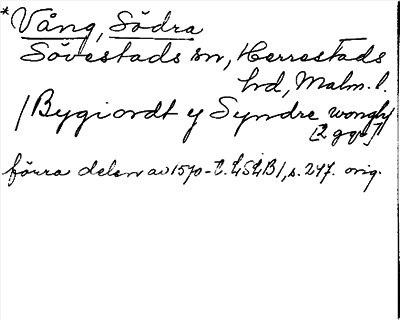 *Vång, Södra
Sövestads sn, Herrestads
hd, Malm. l.
/Bygiordt y Syndre wongh/
[2 ggr]
förra delen av 1570-t. LSLB1, s. 247. orig.